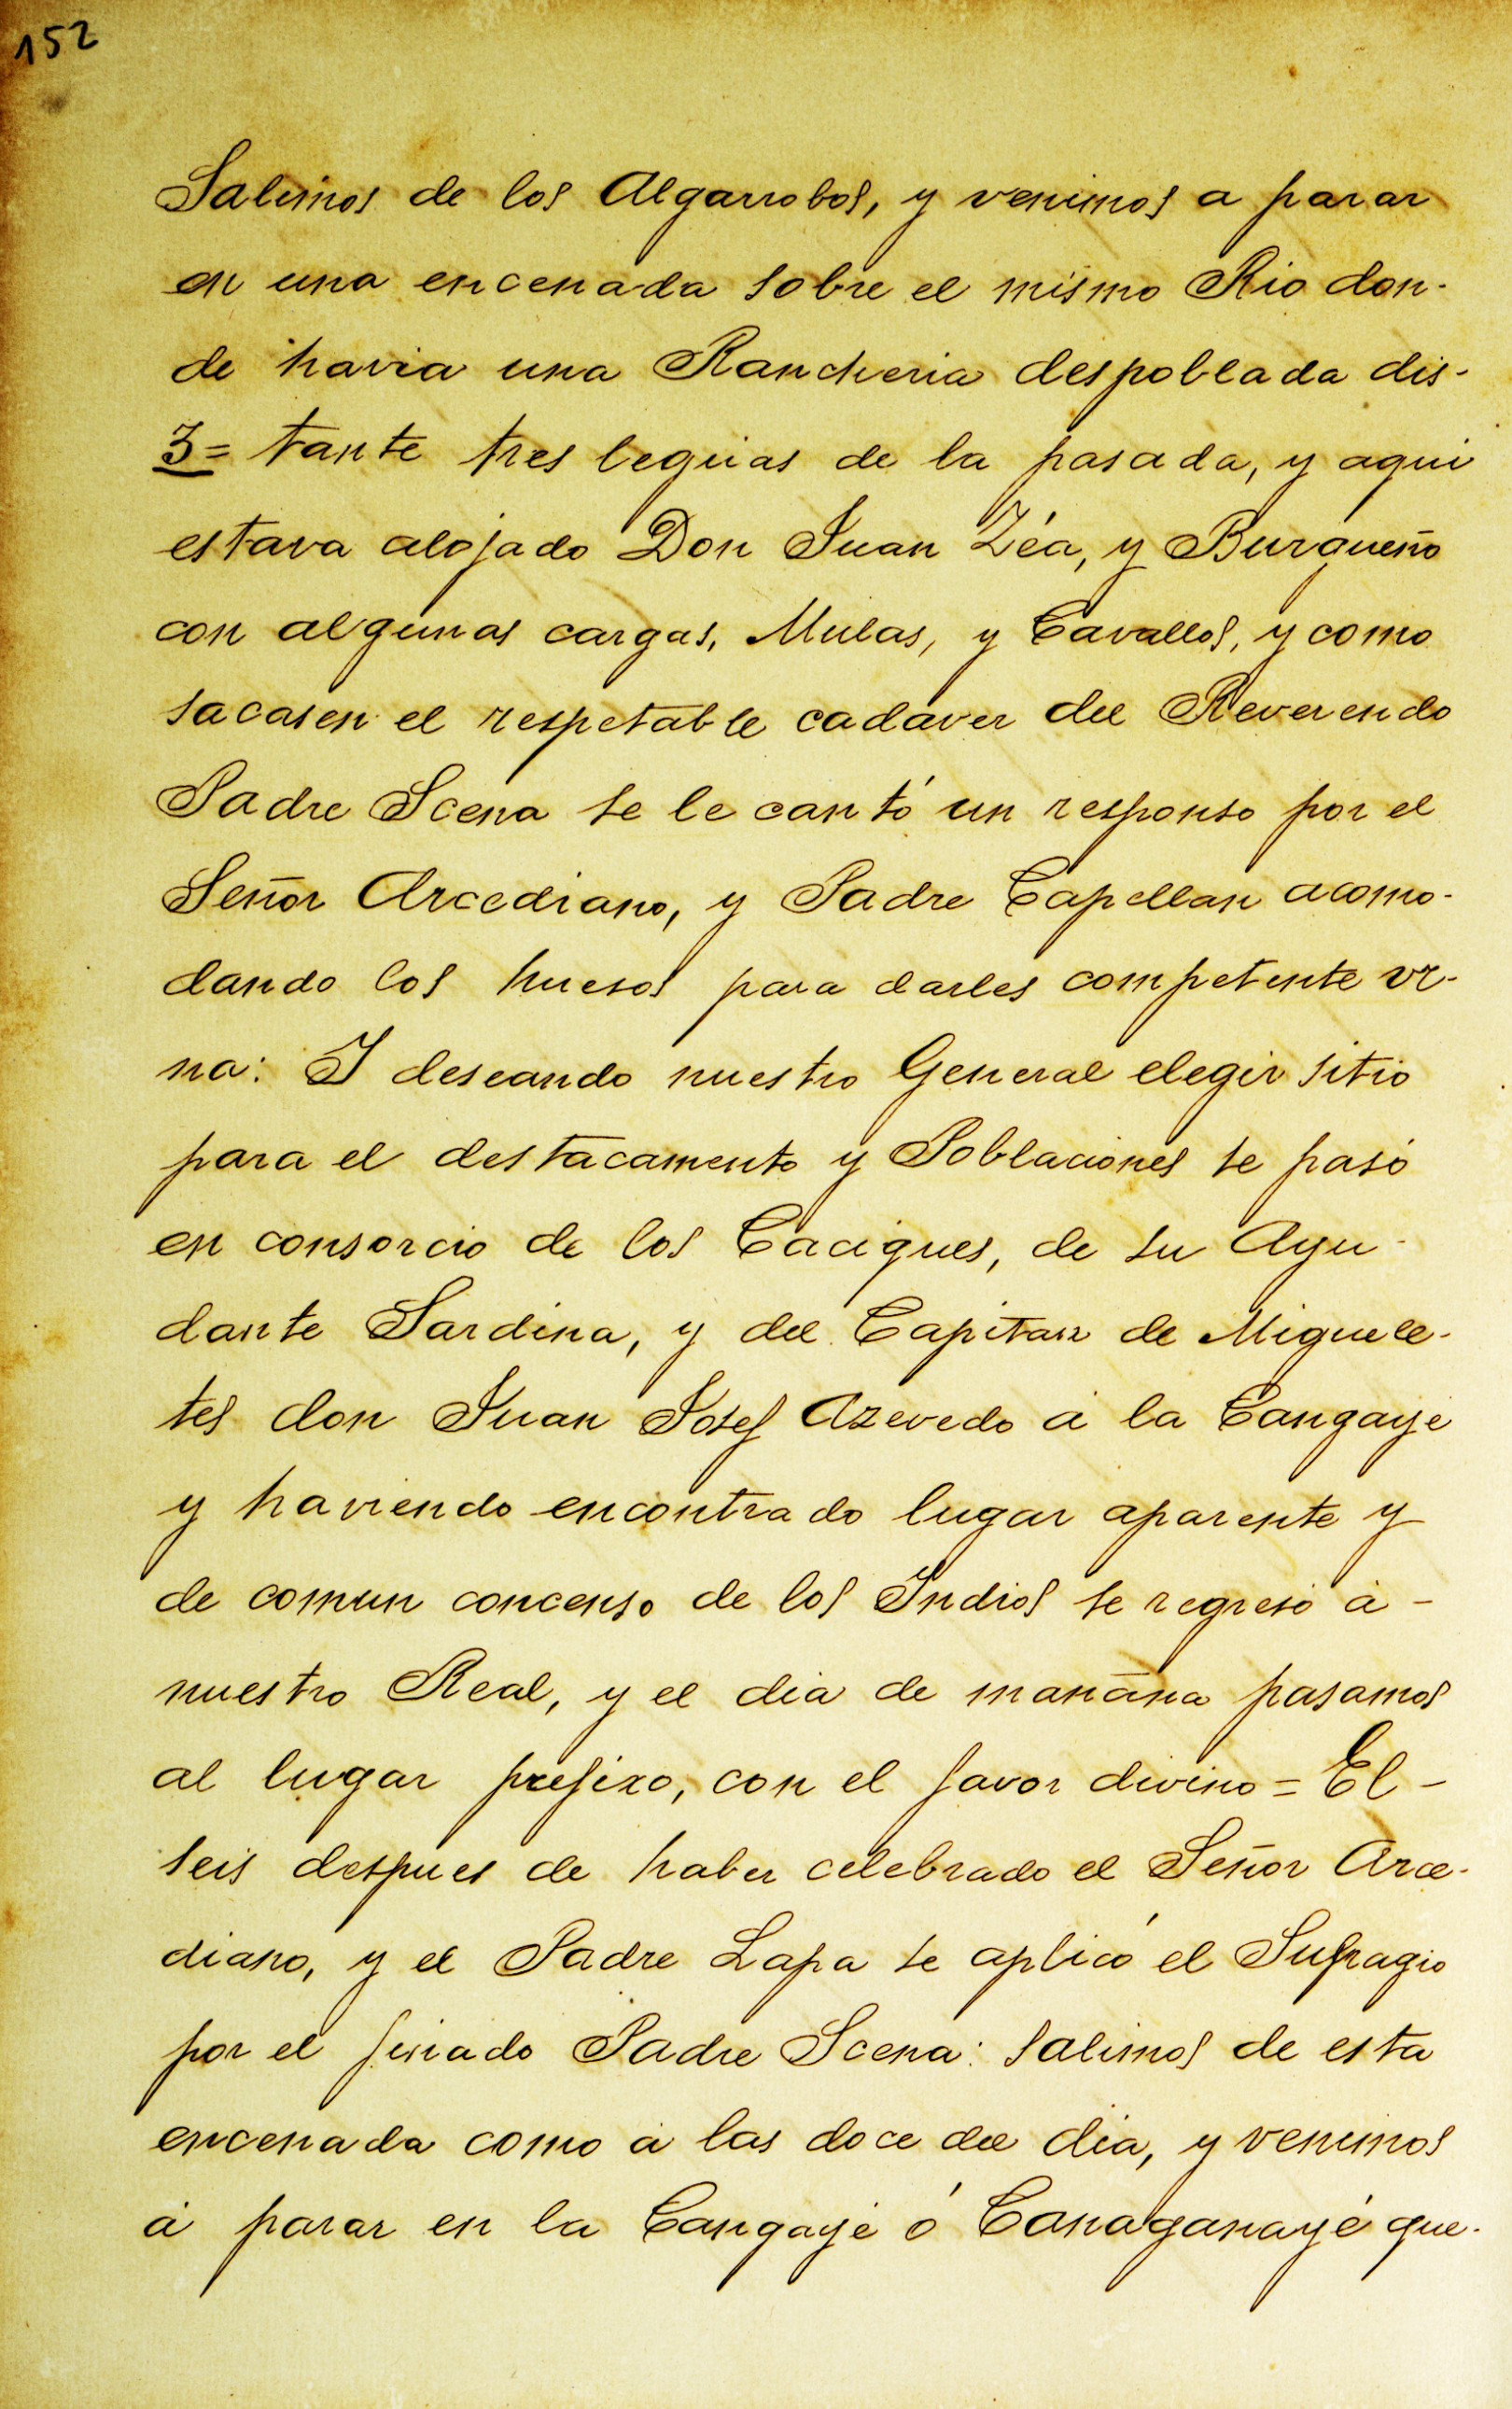 152
Salimos de los Algarrobos, y venimos a parar
en una encenada sobre el mismo Rio don-
de havia una Rancheria despoblada dis-
3= tante tres leguas de la pasada, y aqui
estava alojado Don Juan Zéa, y Burgueño
con algunas cargas, Mulas, y Cavallos, y como
sacasen el respetable cadaver del Reverendo
Padre Scena se le cantó un responso por el
Señor Arcediano, y Padre Capellan acomo-
dando los huesos para darles competente vr-
na: I deseando nuestro General elegir sitio
para el destacamento y Poblaciones se pasó
en consorcio de los Caciques, de su Ayu-
dante Sardina, y del Capitan de Miguele-
tes don Juan Josef Azevedo á la Cangayé
y haviendo encontrado lugar aparente y
de comun concenso de los Indios se regresó á -
nuestro Real, y el dia de mañana pasamos
al lugar prefixo, con el favor divino = El -
seis despues de haber celebrado el Señor Arce-
diano, y el Padre Lapa se aplicó el Sufragio
por el finado Padre Scena: salimos de esta
encenada como á las doce del dia, y venimos
á parar en la Cangayé ó Canaganayé que-